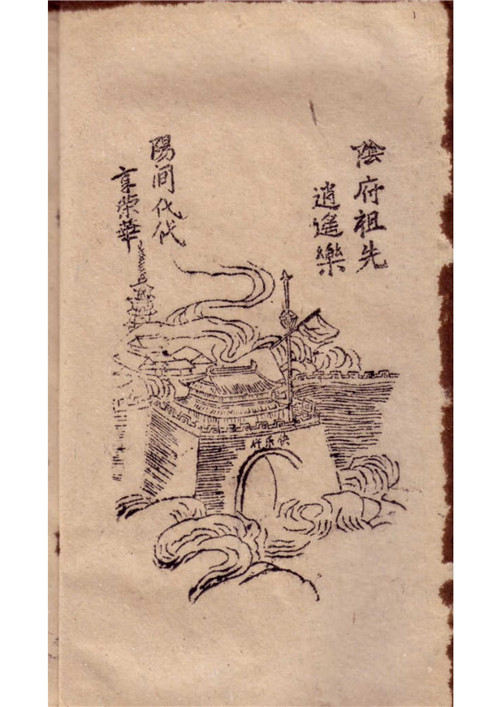 陰府祖先
逍遙樂
陽间代代
享荣華